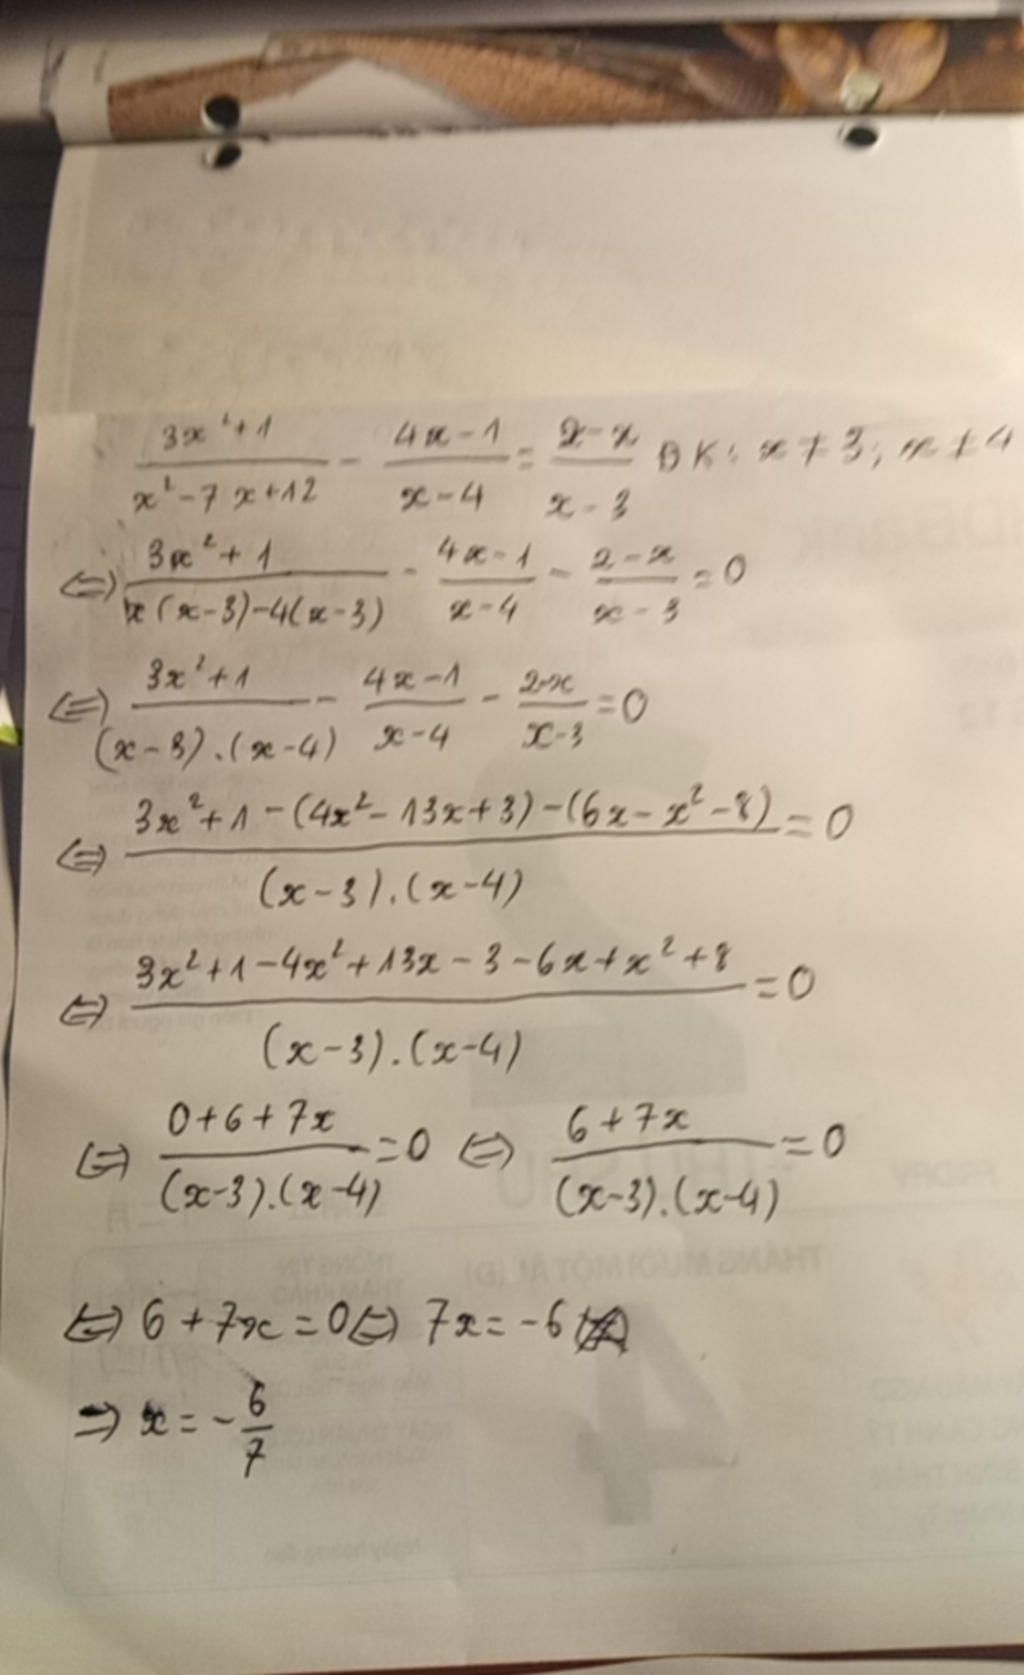 3x²+1/x²-7x+12 - 4x-1/x-4 = 2-x/x-3 ĐK: x≠3; x≠4
⇔ 3x²+1/x(x-3)-4(x-3) - 4x-1/x-4 - 2-x/x-3 = 0
⇔ 3x²+1/(x-3).(x-4) - 4x-1/x-4 - 2-x/x-3 = 0
⇔ 3x²+1-(4x²-13x+3)-(6x-x²-8)/(x-3).(x-4) = 0
⇔ 3x²+1-4x²+13x-3-6x+x²+8/(x-3).(x-4) = 0
⇔ 0+6+7x/(x-3).(x-4) = 0 ⇔ 6+7x/(x-3).(x-4) = 0
⇔ 6+7x=0 ⇔ 7x=-6
⇒ x = -6/7